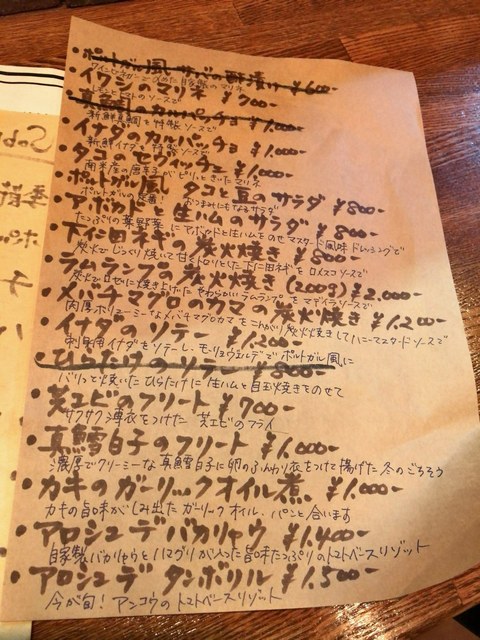 ・ポルトガル風 サバの酢漬け ¥600-
・イワシのマリネ ¥700-
・真鯛のカルパッチョ ¥1.000-
新鮮真鯛を特製ソースで
・イナダのカルパッチョ ¥1.000-
新鮮イナダを特製ソースで
・タコのセヴィッチェ ¥1.000-
南米産の唐辛子がピリッときいたマリネ
・ポルトガル風 タコと豆のサラダ ¥800-
ポルトガルの定番! おつまみにもなるサラダ
・アボカドと生ハムのサラダ ¥800-
たっぷりの葉野菜にアボカドと生ハムをのせ マスタード風味ドレッシングで
・下仁田ネギの炭火焼き ¥800-
炭火でじっくり焼いて甘くトロリとした下仁田ネギをロメスコソースで
・ラムランプの炭火焼き (200g) ¥2.000-
炭火でロゼに焼き上げたやわらかいラムランプをマデイラソースで
・メバチマグロのカマの炭火焼き ¥1.200-
肉厚ボリューミーなメバチマグロカマをこんがり炭火焼きしてハニーマスタードソースで
・イナダのソテー ¥1.200-
刺身用イナダをソテーし、モーリョヴィラォンデで ポルトガル風に
・ひらたけのソテー ¥800-
バリッと焼いたひらたけに 生ハムと目玉焼きをのせて
・芝エビのフリート ¥700-
サクサク薄衣をつけた 芝エビのフライ
・真鱈白子のフリート ¥1.000-
濃厚でクリーミーな真鱈白子に卵のふんわり衣をつけて揚げた 冬のごちそう
・カキのガーリックオイル煮 ¥1.000-
カキの旨味がしみ出たガーリックオイル、パンと合います
・アロシュ デ バカリャウ ¥1.400-
自家製バカリャウとハマグリが入った旨味たっぷりのトマトベースリゾット
・アロシュ デ タンボリル ¥1.500-
今が旬! アンコウのトマトベースリゾット